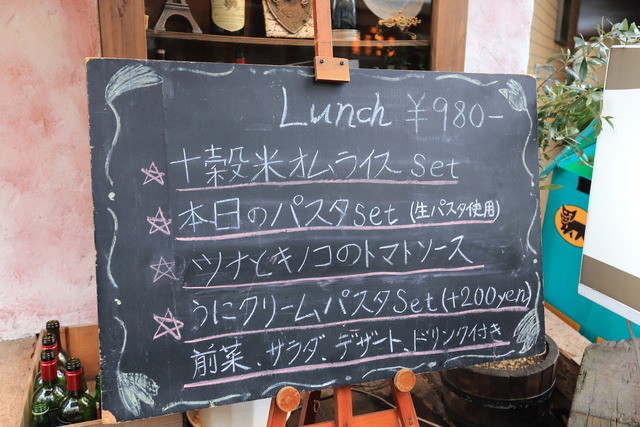 Lunch ¥980-
十穀米オムライスSet
本日のパスタSet (生パスタ使用)
ツナとキノコのトマトソース
うにクリームパスタSet(+200yen)
前菜、サラダ、デザート、ドリンク付き